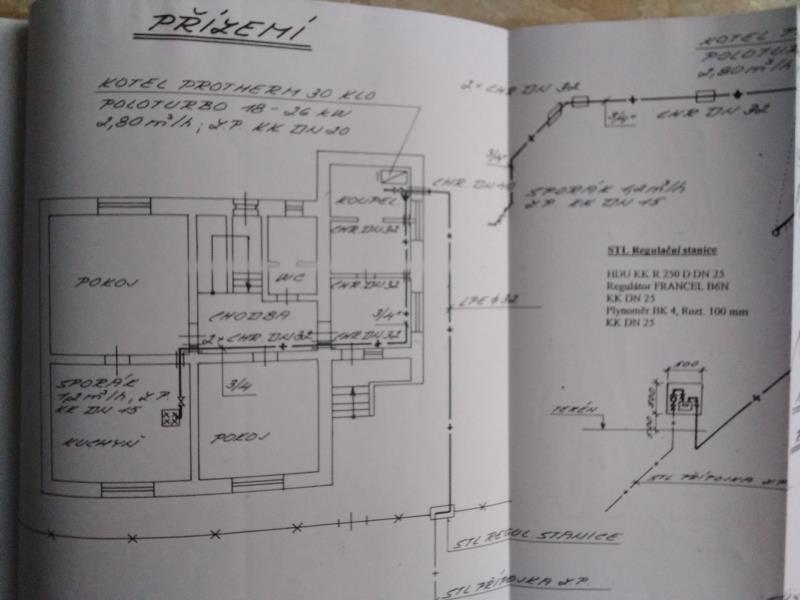 PŘÍZEMÍ
KOTEL PROTHERM 30 KLO
POLOTURBO 18-26 kW
2,80 m³/h; Z.P. KK DN 20
KOUPEL
CHR. DN 40
CHR. DN 32
CHR. DN 32
3/4"
CHR. DN 32
POKOJ
WC
CHODBA
2× CHR. DN 32
3/4
LPE ø 32
SPORÁK
1,2 m³/h, Z.P.
KK DN 15
KUCHYNĚ
POKOJ
STL REGUL STANICE
STL PŘÍPOJKA Z.P.
KOTEL P
POLOTUR
2,80 m³/h
2× CHR. DN 32
3/4"
CHR DN 32
3/4"
SPORÁK 1,2 m³/h
Z.P. KK DN 15
STL Regulační stanice
HDU KK R 250 D DN 25
Regulátor FRANCEL B6N
KK DN 25
Plynoměr BK 4, Rozt. 100 mm
KK DN 25
500
500
500
TERÉN
STL PŘÍPOJKA Z.P.